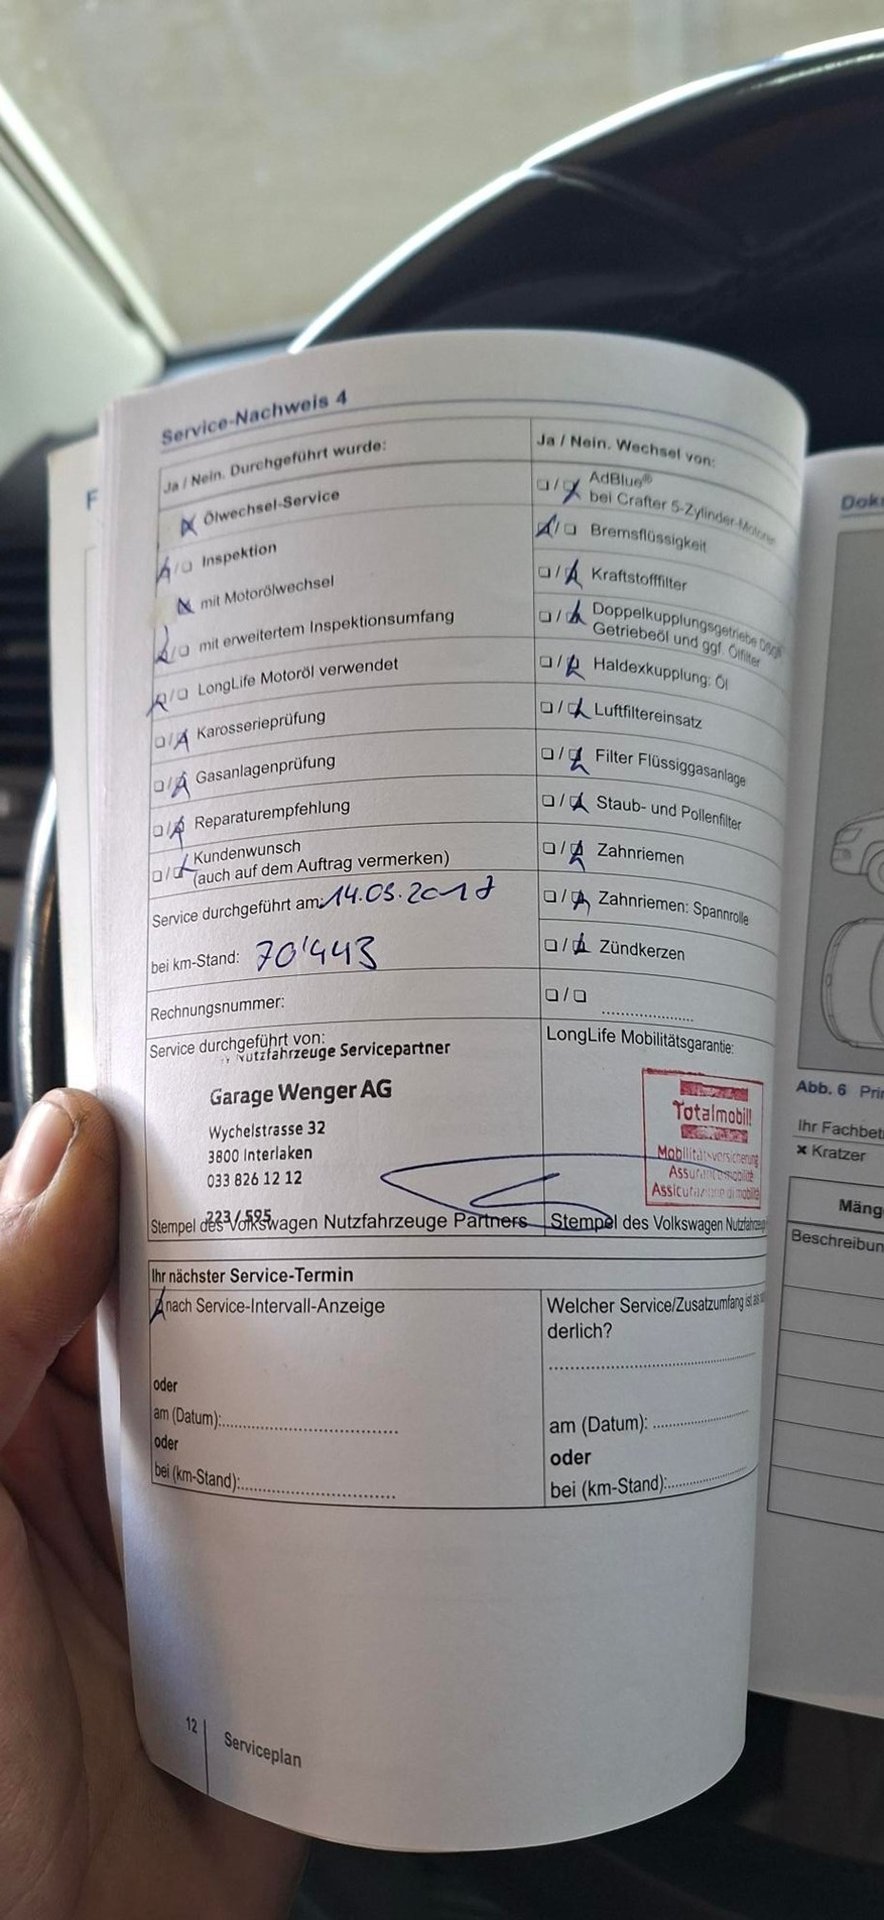 Service-Nachweis 4
Ja / Nein. Durchgeführt wurde:
Ölwechsel-Service
Inspektion
mit Motorölwechsel
mit erweitertem Inspektionsumfang
LongLife Motoröl verwendet
Karosserieprüfung
Gasanlagenprüfung
Reparaturempfehlung
Kundenwunsch
(auch auf dem Auftrag vermerken)
Service durchgeführt am: 14.03.2017
bei km-Stand: 70'443
Rechnungsnummer:
Service durchgeführt von:
Nutzfahrzeuge Servicepartner
Garage Wenger AG
Wychelstrasse 32
3800 Interlaken
033 826 12 12
223/595
Stempel des Volkswagen Nutzfahrzeuge Partners
Ja / Nein. Wechsel von:
AdBlue®
bei Crafter 5-Zylinder-Motoren
Bremsflüssigkeit
Kraftstofffilter
Doppelkupplungsgetriebe DSG®
Getriebeöl und ggf. Ölfilter
Haldexkupplung: Öl
Luftfiltereinsatz
Filter Flüssiggasanlage
Staub- und Pollenfilter
Zahnriemen
Zahnriemen: Spannrolle
Zündkerzen
LongLife Mobilitätsgarantie:
Totalmobil!
Mobilitätsversicherung
Assurance mobilité
Assicurazione di mobilità
Stempel des Volkswagen Nutzfahrzeug
Ihr nächster Service-Termin
nach Service-Intervall-Anzeige
oder
am (Datum):
oder
bei (km-Stand):
Welcher Service/Zusatzumfang ist als
derlich?
am (Datum):
oder
bei (km-Stand):
12
Serviceplan
F
Dok
Abb. 6 Prin
Ihr Fachbet
× Kratzer
Mäng
Beschreibun